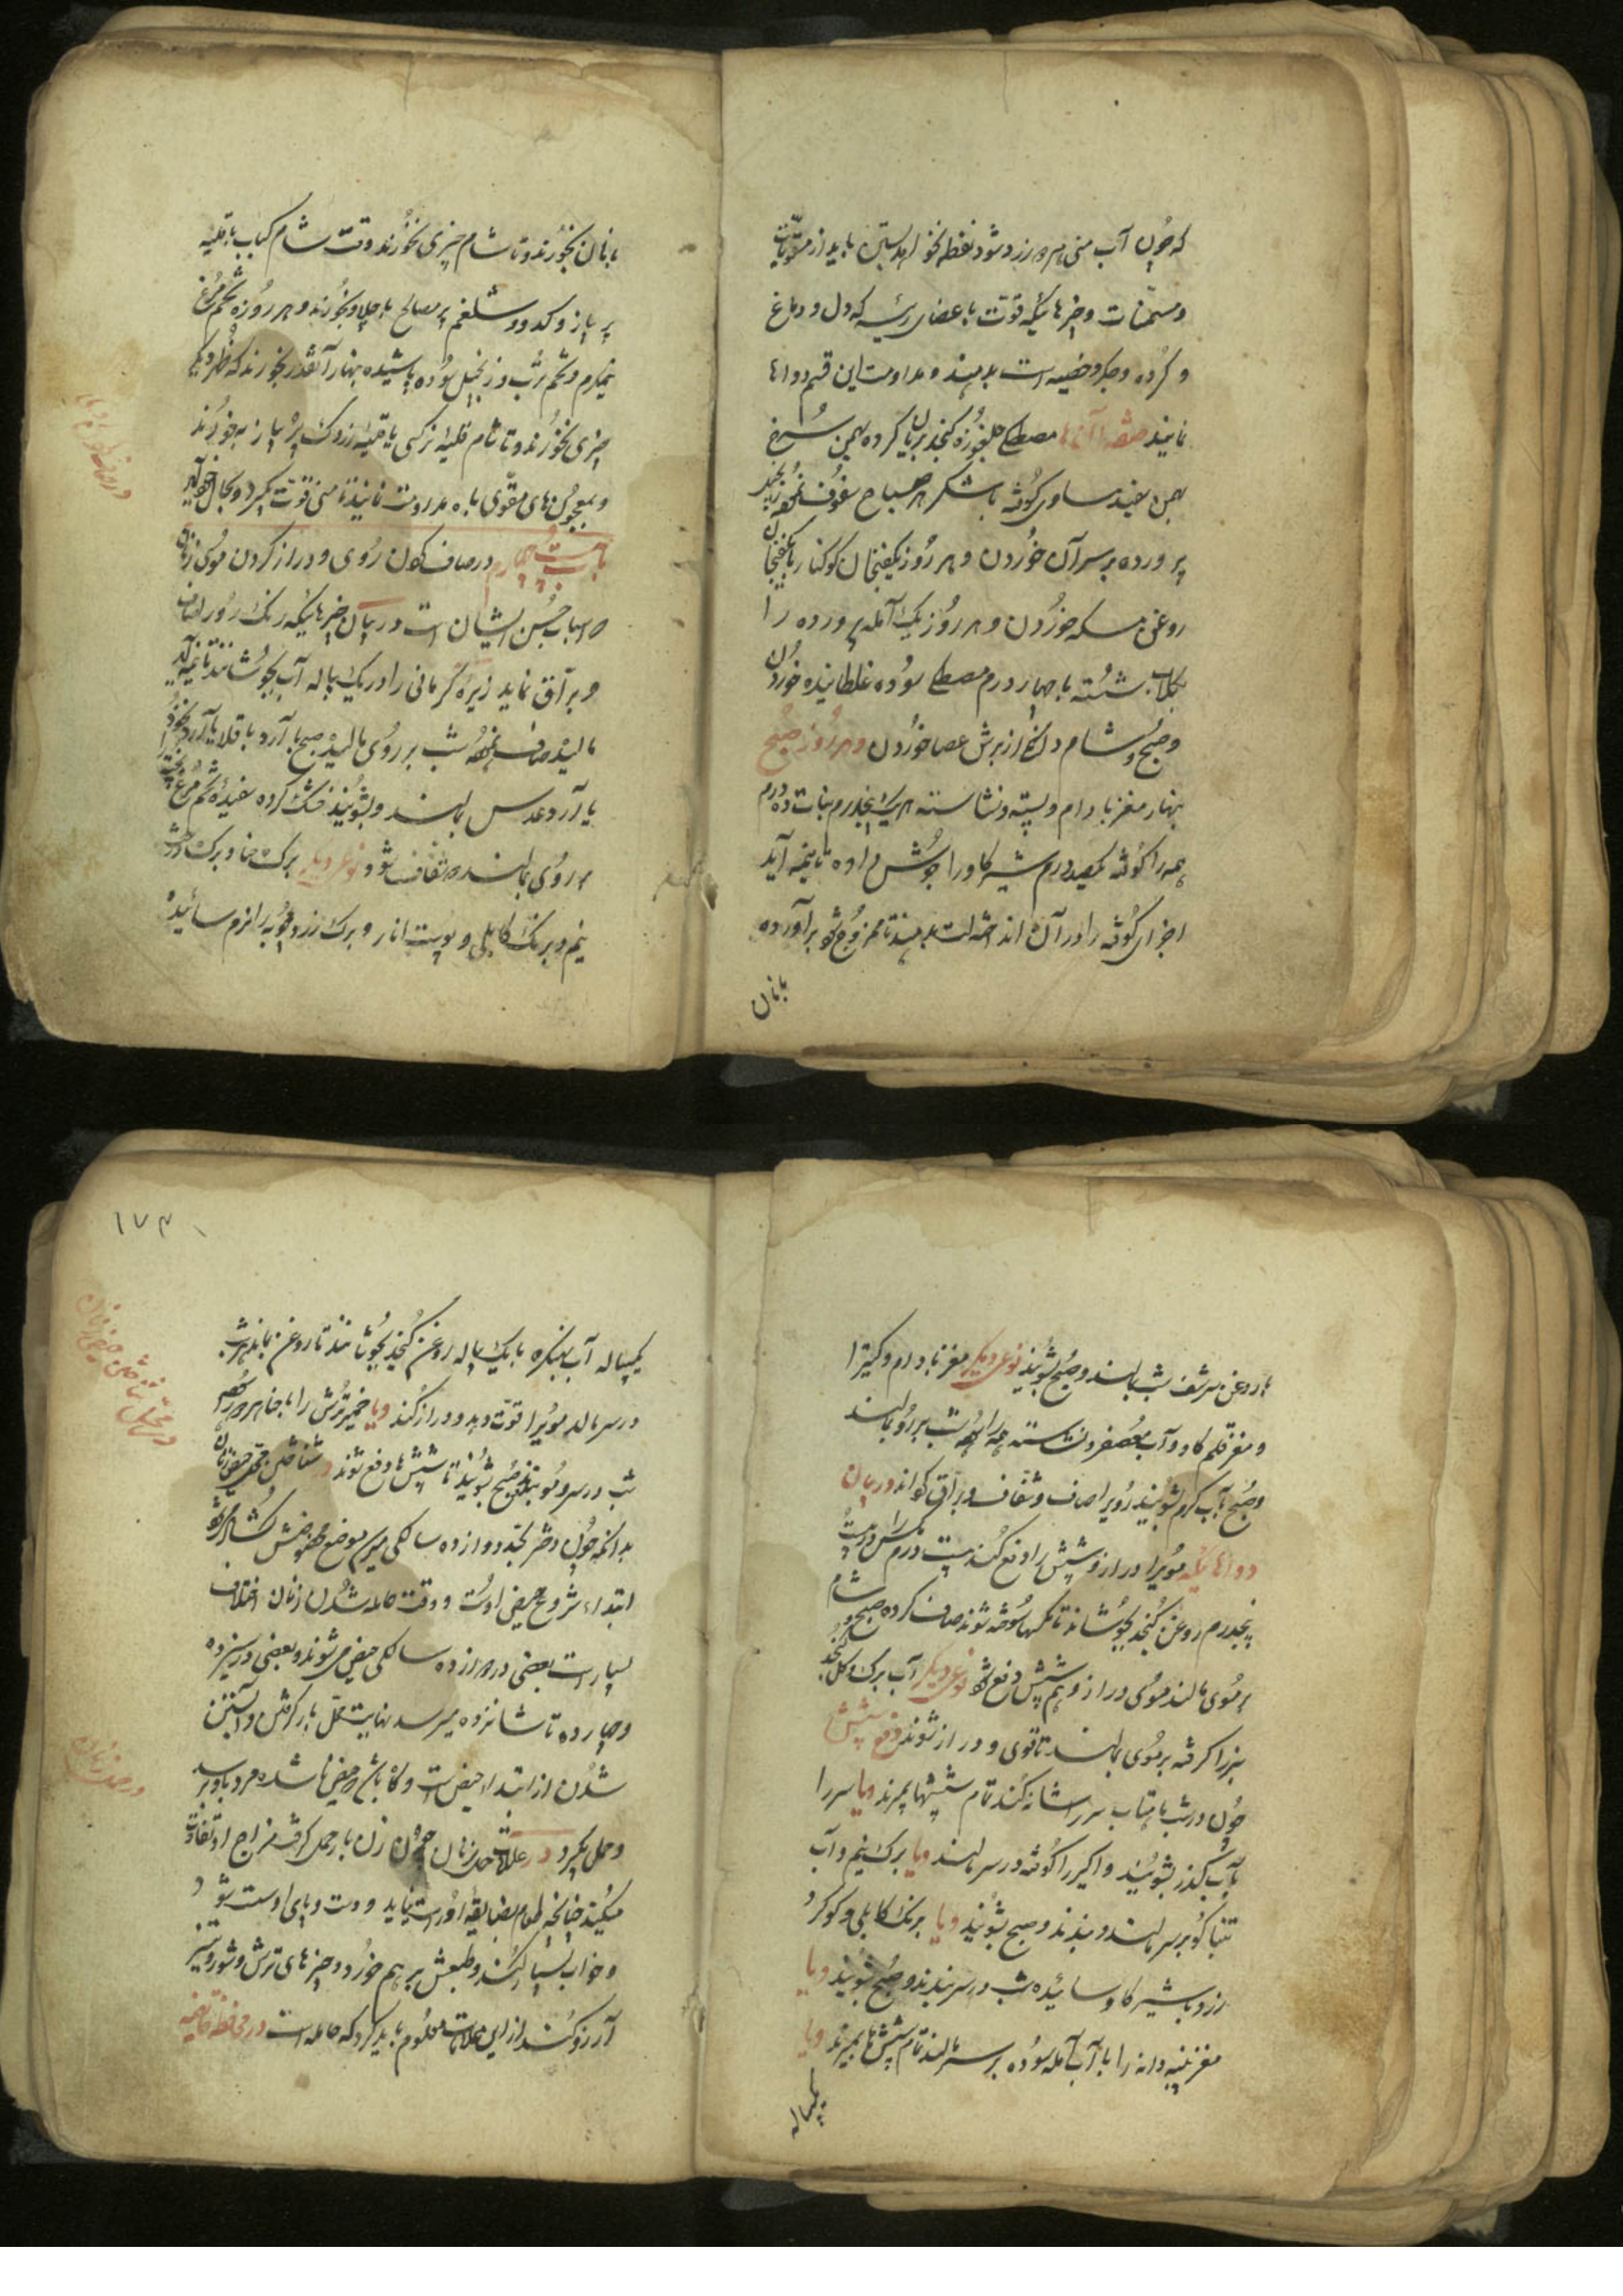 که چون آب منی مرد زرد شود نطفه نخواهد بستن باید از مقویات
و مسمنات و چیزهائیکه قوت باعضای رئیسه که دل و دماغ
و گرده و جگر و خصیه است بدهند و مداومت این قسم دواها
نمایند صفة آنها مصطکی چلغوزه کنجد بریان کرده بهمن سرخ
بهمن سفید مساوی کوفته با شکر هر صباح سفوف نموده زنجبیل
پرورده بر سر آن خوردن و هر روز یکفنجان کوکنار با یکفنجان
روغن مسکه خوردن و هر روز یک آمله پرورده را
بگلاب شسته با چهار درم مصطکی سوده غلطانیده خوردن
و صبح و شام از برش عصا خوردن و هر روز صبح
بنهار مغز بادام و پسته و نشاسته هر یک پنجدرم نبات ده درم
همه را کوفته یکصد درم شیر گاو را جوش داده تا بنیمه آید
اجزای کوفته را در آن انداخته لت بدهند تا ممزوج شود برآورده
بانان
بانان بخورند و تا شام چیزی نخورند وقت شام کباب با قلیه
پر پیاز و کدو و شلغم پر مصالح با چلاو بخورند و هر روزه تخم مرغ
نیمگرم و تخم ترب و زنجبیل سوده پاشیده بنهار آنقدر بخورند که ظهر دیگر
چیزی نخورند و تا شام قلیه نرگسی یا قلیه زردک پر پیاز بخورند
و بمعجونهای مقوی باه مداومت نمایند تا منی قوت گیرد و بحال خود آید
باب بیست چهارم در صاف کردن روی و دراز کردن موی زنان
که اسباب حسن ایشان است در بیان چیزهائیکه رنگ رو را صاف
و براق نماید زیره کرمانی را در یک پیاله آب بجوشانند تا بنیمه آید
مالیده صاف نموده شب بر روی مالیده صبح با آرد باقلا یا آرد نخود
یا آرد عدس بمالند و بشویند خشک کرده سفیده تخم مرغ پخته
بر روی بمالند شفاف شود نوع دیگر برگ حنا و برگ درخت
نیم و برنگ کابلی و پوست انار و برگ زردچوبه را نرم سائیده
با روغن سرشف شب بمالند و صبح بشویند نوع دیگر مغز بادام و کتیرا
و مغز قلم گاو و آب معصفر و نشاسته همه را نموده شب بر رو بمالند
و صبح بآب گرم بشویند رو را صاف و شفاف و براق گرداند در بیان
دواهائیکه مویرا دراز و شپش را دفع کند بیست درم مگس را در بیست
پنجدرم روغن کنجد بجوشانند تا مگسها سوخته شوند صاف کرده صبح و شام
بر موی مالند موی دراز و هم شپش دفع شود نوع دیگر آب برگ و گل کنجد
سبز را گرفته بر موی بمالند تا قوی و دراز شوند دفع شپش
چون در شب ماهتاب سر را شانه کند تمام شپشها بمیرند ویا سر را
بآب گندر بشویند و اکیر را کوفته در سر مالند ویا برگ نیم و آب
تنباکو بر سر مالند و ببندند و صبح بشویند ویا برنگ کابلی و گوگرد
زرد با شیر گاو سائیده شب در سر ببندند و صبح بشویند ویا
مغز پنبه دانه را با آب آمله سوده بر سر مالند تمام شپشها بمیرند ویا
یکپیاله
۱۷۴
یکپیاله آب بهنگره با یک پیاله روغن کنجد بجوشانند تا روغن بماند هر شب
در سر مالد مویرا قوت دهد و دراز کند ویا خمیر ترش را با حنا
شب در سر و مو ببندند صبح بشویند تا شپشها دفع شوند در شناختن حیض زنان
بدانکه چون دختر بحد دوازده سالگی میرسد موضع مخصوصش گشاده میشود
ابتداء شروع حیض اوست و وقت حامله شدن زنان اختلاف
بسیار است بعضی در دوازده سالگی حیض میشوند و بعضی در سیزده
و چهارده تا شانزده میرسد نهایت محل بار گرفتن و آبستن
شدن از ابتداء حیض است و گاه باشد که حیض نا شده مرد باو برسد
و حمل بگیرد در علامت حمل زنان چون زن بار حمل گرفت مزاج او تفاوت
میکند چنانچه طعام بضایقه او راست نیاید و دست و پای او سست شود
و خواب بسیار کند و طبعش برهم خورد و چیزهای ترش و شور و تیز
آرزو کند از این علامات معلوم باید کرد که حامله است در محافظه حامله